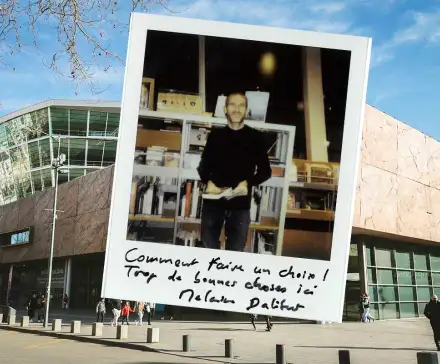 Comment faire un choix !
Trop de bonnes choses ici